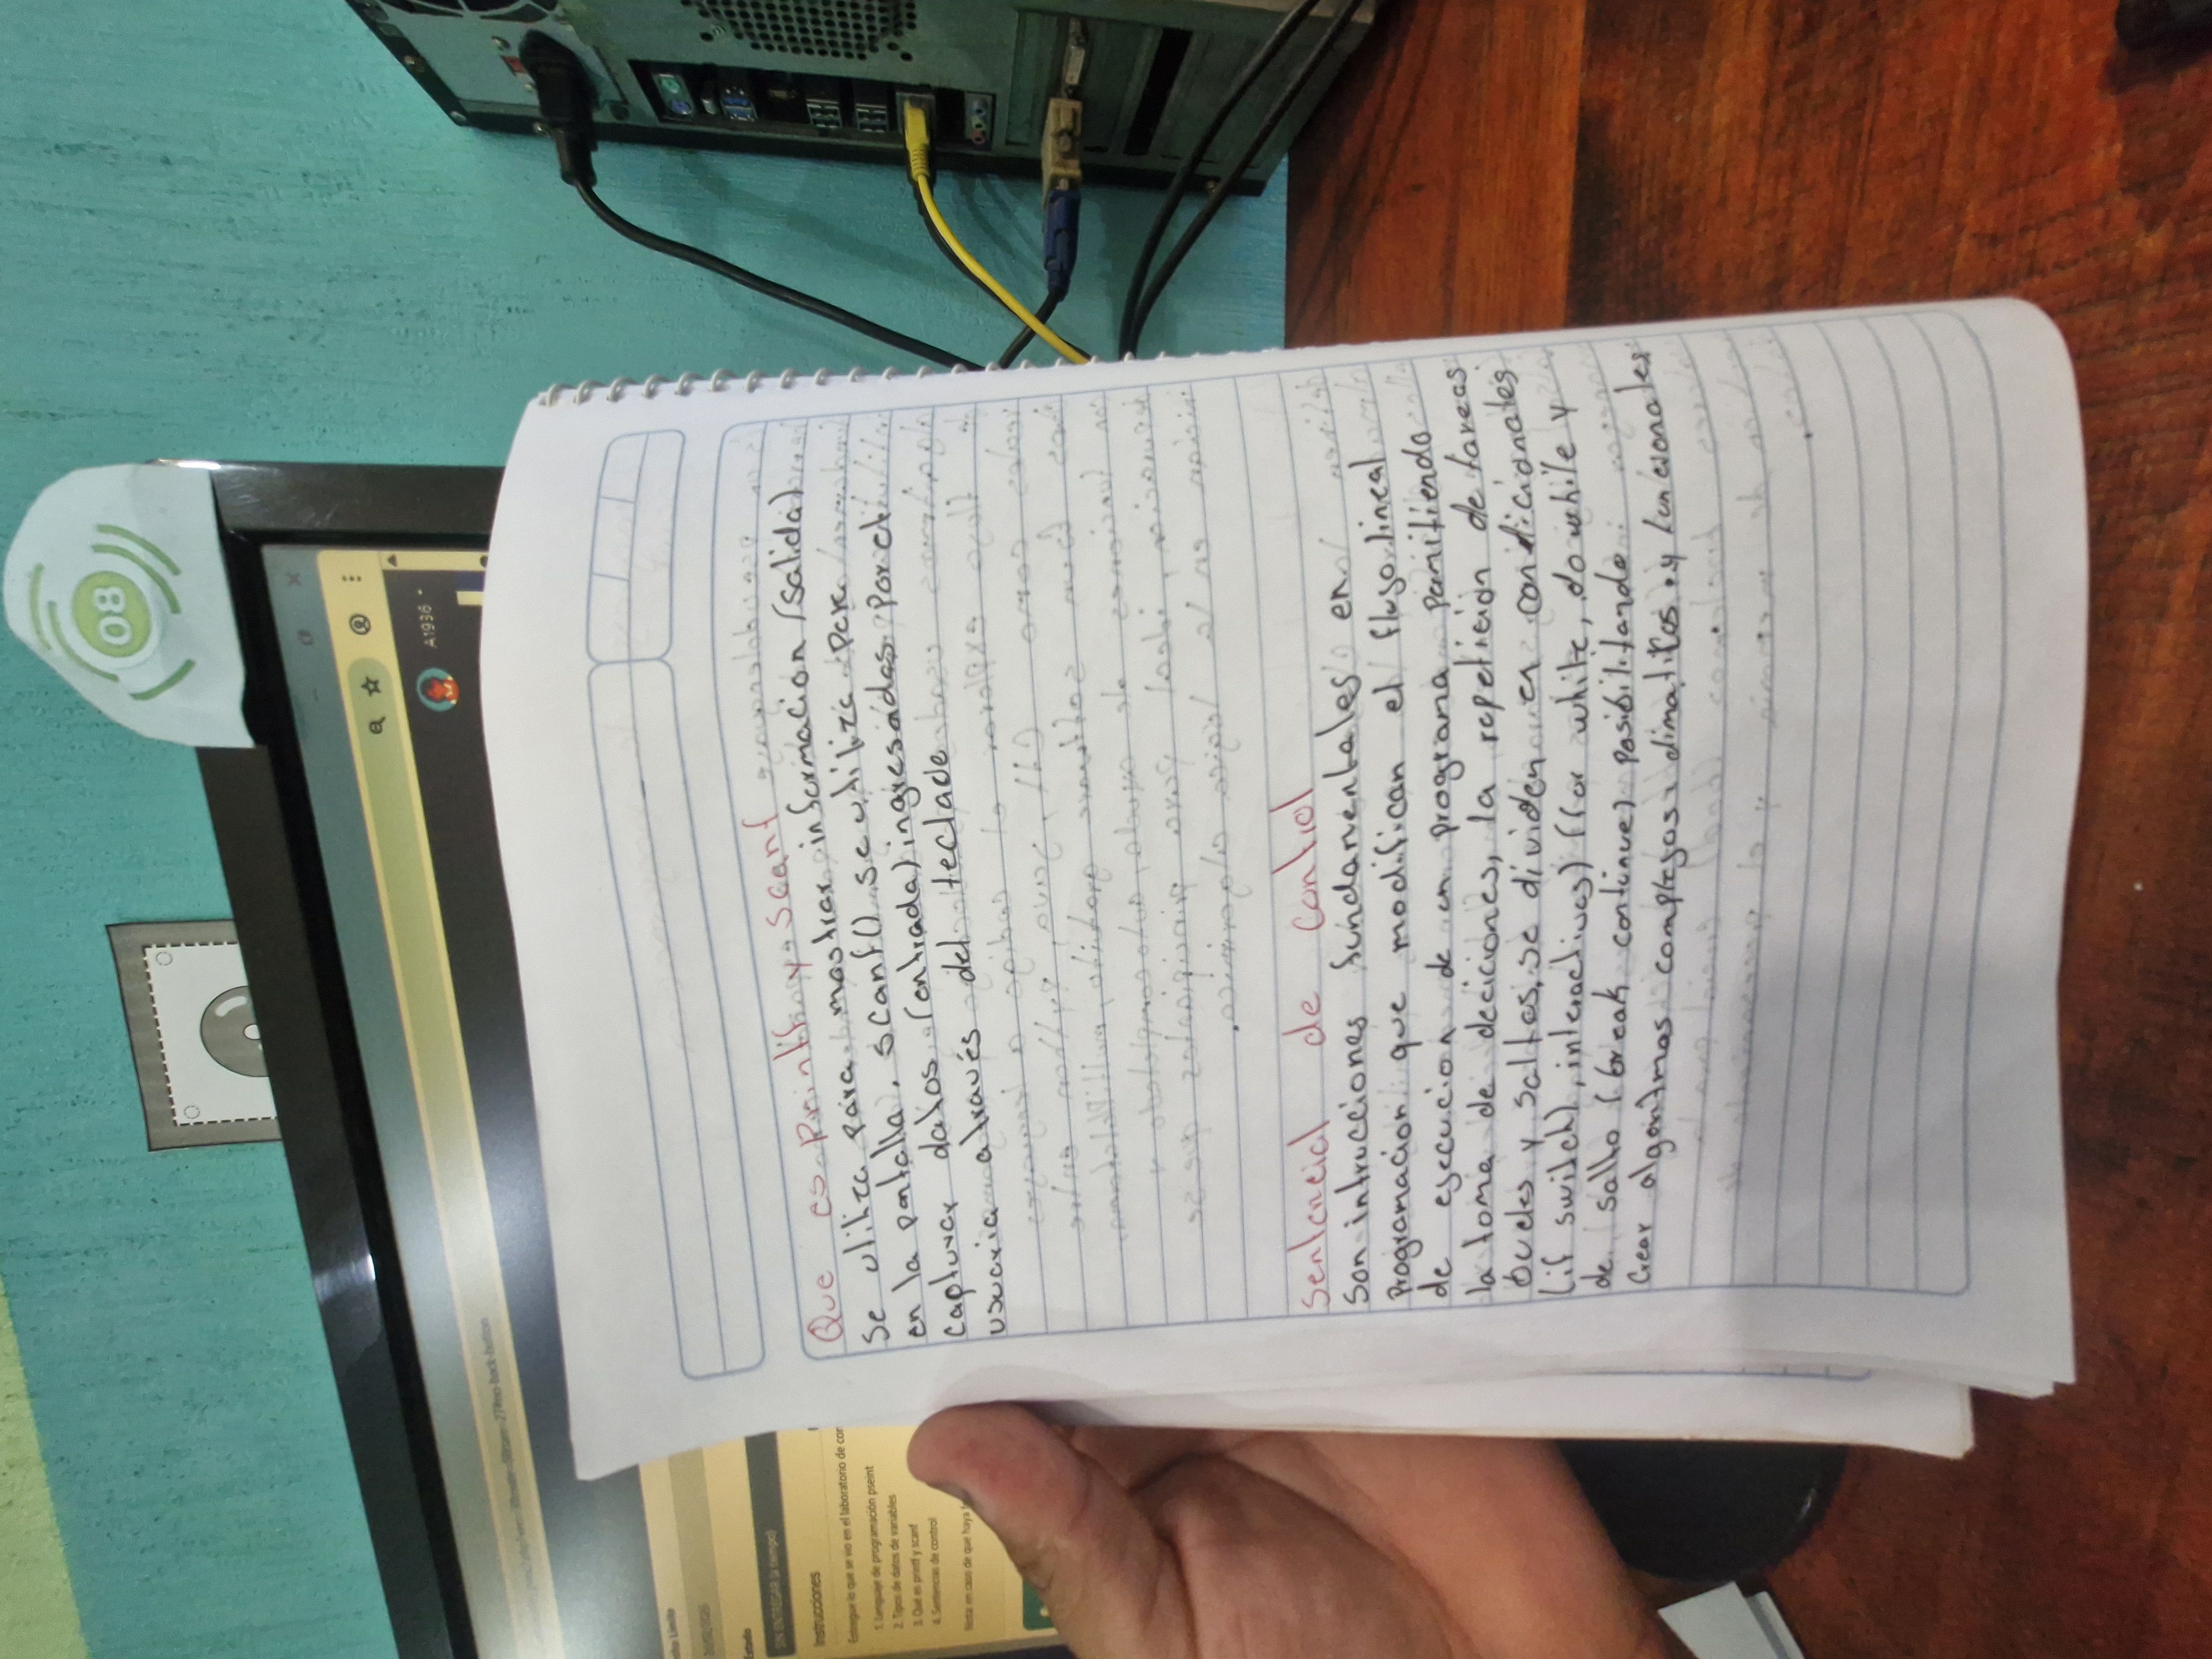 Que es printf y scanf
Se utiliza para mostrar informacion (salida)
en la pantalla, scanf() se utiliza para
capturar datos (entrada) ingresados por el
usuario a través del teclado
Sentencial de Control
Son intrucciones fundamentales en
Programación que modifican el flujo lineal
de ejecucion de un programa permitiendo
la toma de deciciones, la repetición de tareas
bucles y saltos, se dividen en condicionales
(if switch), interactivas) (for while, do while y
de salto (break continue) posibilitando
Crear algoritmos complejos dimaticos y funcionales
08
A1936
Estado
Instrucciones
Entregue lo que se vio en el laboratorio de con
1. Lenguaje de programación pseint
2. Tipos de datos de variables
3. Qué es printf y scanf
4. Sentencias de control
Nota en caso de que haya